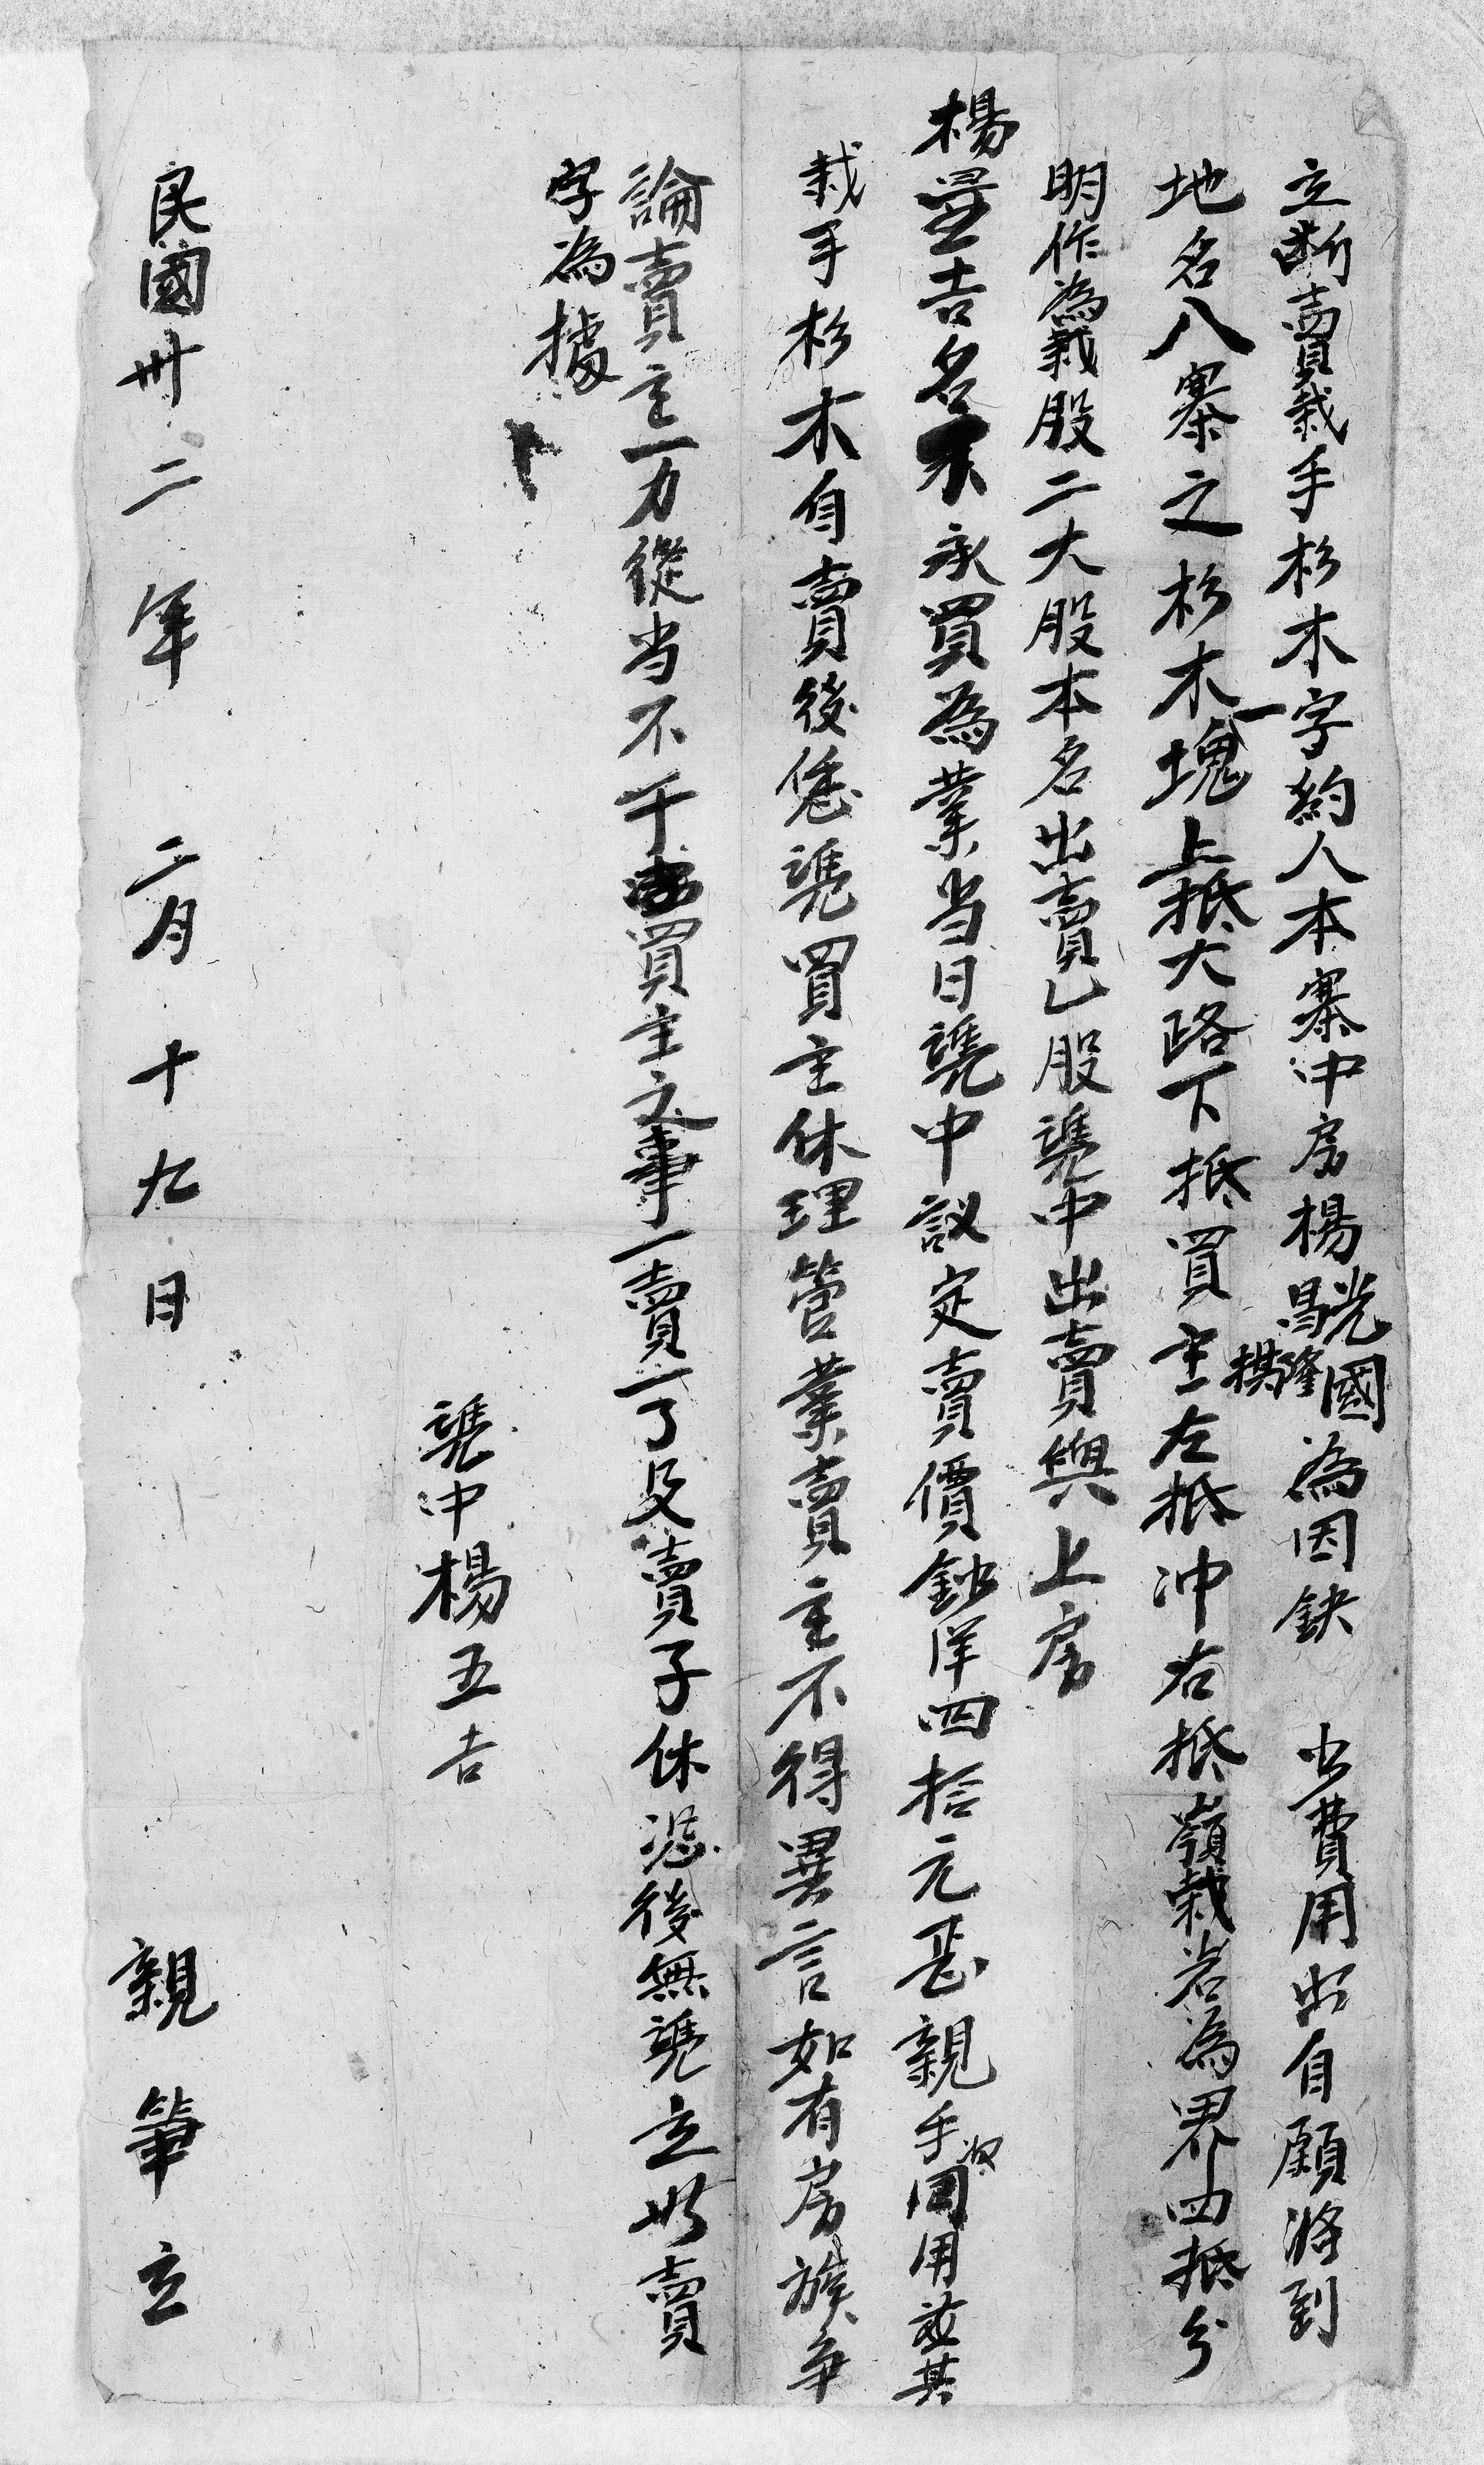 立断賣栽手杉木字約人本寨中房楊昌光國隆棋為因缺少費用出自願將到
地名八寨之杉木一塊上抵大路下抵買主左抵冲右抵嶺栽岩為界四抵分
明作為栽股二大股本名出賣乚股凴中出賣與上房
楊吉名承買為業当日凴中議定賣價鈔洋四拾元正親手收回用並其
栽手杉木自賣後恁凴買主休理管業賣主不得異言如有房族爭
論賣主一力從当不干買主之事一賣一了父賣子休恐後無凴立此賣
字為據
凴中楊五吉
民國卅二年二月十九日親筆立